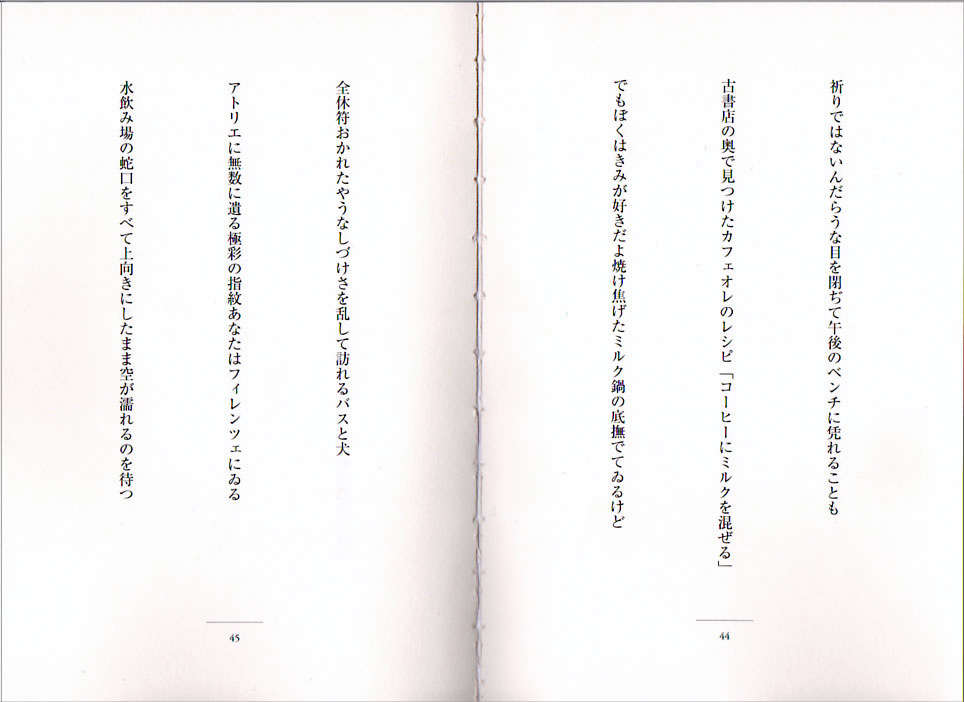 祈りではないんだらうな目を閉ぢて午後のベンチに凭れることも
古書店の奥で見つけたカフェオレのレシピ「コーヒーにミルクを混ぜる」
でもぼくはきみが好きだよ焼け焦げたミルク鍋の底撫でてゐるけど
44
全休符おかれたやうなしづけさを乱して訪れるバスと犬
アトリエに無数に遺る極彩の指紋あなたはフィレンツェにゐる
水飲み場の蛇口をすべて上向きにしたまま空が濡れるのを待つ
45